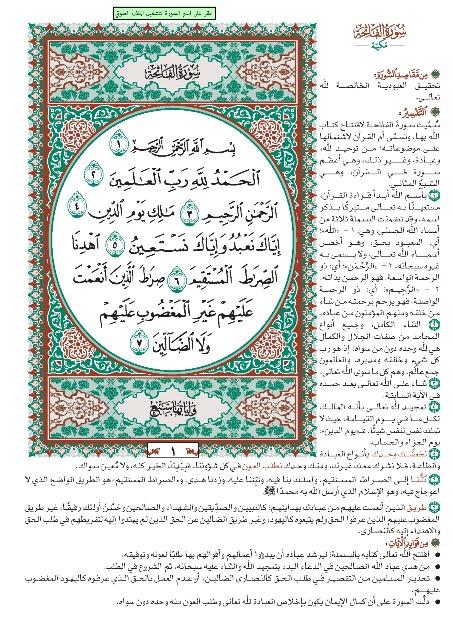 انقر على اسم السورة لتشغيل الملف الصوتي
سُورَةُ الفَاتِحَةِ
بِسْمِ اللَّهِ الرَّحْمَٰنِ الرَّحِيمِ ١
الْحَمْدُ لِلَّهِ رَبِّ الْعَالَمِينَ ٢
الرَّحْمَٰنِ الرَّحِيمِ ٣ مَالِكِ يَوْمِ الدِّينِ ٤
إِيَّاكَ نَعْبُدُ وَإِيَّاكَ نَسْتَعِينُ ٥ اهْدِنَا
الصِّرَاطَ الْمُسْتَقِيمَ ٦ صِرَاطَ الَّذِينَ أَنْعَمْتَ
عَلَيْهِمْ غَيْرِ الْمَغْضُوبِ عَلَيْهِمْ
وَلَا الضَّالِّينَ ٧
وَآيَاتُهَا سَبْعٌ
١
سُورَةُ الفَاتِحَةِ
مَكِيّة
مِن مَّقَاصِدِ السُّورَةِ:
تحقيق العبودية الخالصة لله
تعالى.
التَّفْسِيرُ:
سُمِّيت سورة الفاتحة لافتتاح كتاب
الله بها، وتسمى أم القرآن لاشتمالها
على موضوعاته؛ من توحيد لله،
وعبادة، وغير ذلك، وهي أعظم
سورة في القرآن، وهي
السبع المثاني.
باسم الله أبدأ قراءة القرآن،
مستعينًا به تعالى متبركًا بذكر
اسمه. وقد تضمنت البسملة ثلاثة من
أسماء الله الحسنى وهي: ١ - «الله»؛
أي: المعبود بحق، وهو أخص
أسماء الله تعالى، ولا يسمى به
غيره سبحانه. ٢ - «الرَّحْمَن»؛ أي: ذو
الرحمة الواسعة. فهو الرحمن بذاته.
٣ - «الرَّحِيم»؛ أي: ذو الرحمة
الواصلة. فهو يرحم برحمته من شاء
من خلقه ومنهم المؤمنون من عباده.
الثناء الكامل، وجميع أنواع
المحامد من صفات الجلال والكمال
هي لله وحده دون من سواه؛ إذ هو رب
كل شيء وخالقه ومدبره. والعالمون
جمع عالَم، وهم كل ما سوى الله تعالى.
ثناء على الله تعالى بعد حمده
في الآية السابقة.
تمجيد لله تعالى بأنه المالك
لكل ما في يوم القيامة، حيث لا
تملك نفس لنفس شيئًا. فـ«يوم الدين»:
يوم الجزاء والحساب.
نخصُّك وحدك بأنواع العبادة
والطاعة، فلا نشرك معك غيرك، ومنك وحدك نطلب العون في كل شؤوننا، فبيدك الخير كله، ولا مُعين سواك.
دُلَّنا إلى الصراط المستقيم، واسلك بنا فيه، وثبّتنا عليه، وزدنا هدى. و«الصراط المستقيم» هو الطريق الواضح الذي لا
اعوجاج فيه، وهو الإسلام الذي أرسل الله به محمدًا ﷺ.
طريق الذين أنعمت عليهم من عبادك بهدايتهم؛ كالنبيين والصدّيقين والشهداء والصالحين وحسُن أولئك رفيقًا، غير طريق
المغضوب عليهم الذين عرفوا الحق ولم يتبعوه كاليهود، وغير طريق الضالين عن الحق الذين لم يهتدوا إليه لتفريطهم في طلب الحق
والاهتداء إليه كالنصارى.
مِن فَوَائِدِ الآيَاتِ:
• افتتح الله تعالى كتابه بالبسملة؛ ليرشد عباده أن يبدؤوا أعمالهم وأقوالهم بها طلبًا لعونه وتوفيقه.
• من هدي عباد الله الصالحين في الدعاء البدء بتمجيد الله والثناء عليه سبحانه، ثم الشروع في الطلب.
• تحذير المسلمين من التقصير في طلب الحق كالنصارى الضالين، أو عدم العمل بالحق الذي عرفوه كاليهود المغضوب
عليهم.
• دلَّت السورة على أن كمال الإيمان يكون بإخلاص العبادة لله تعالى وطلب العون منه وحده دون سواه.